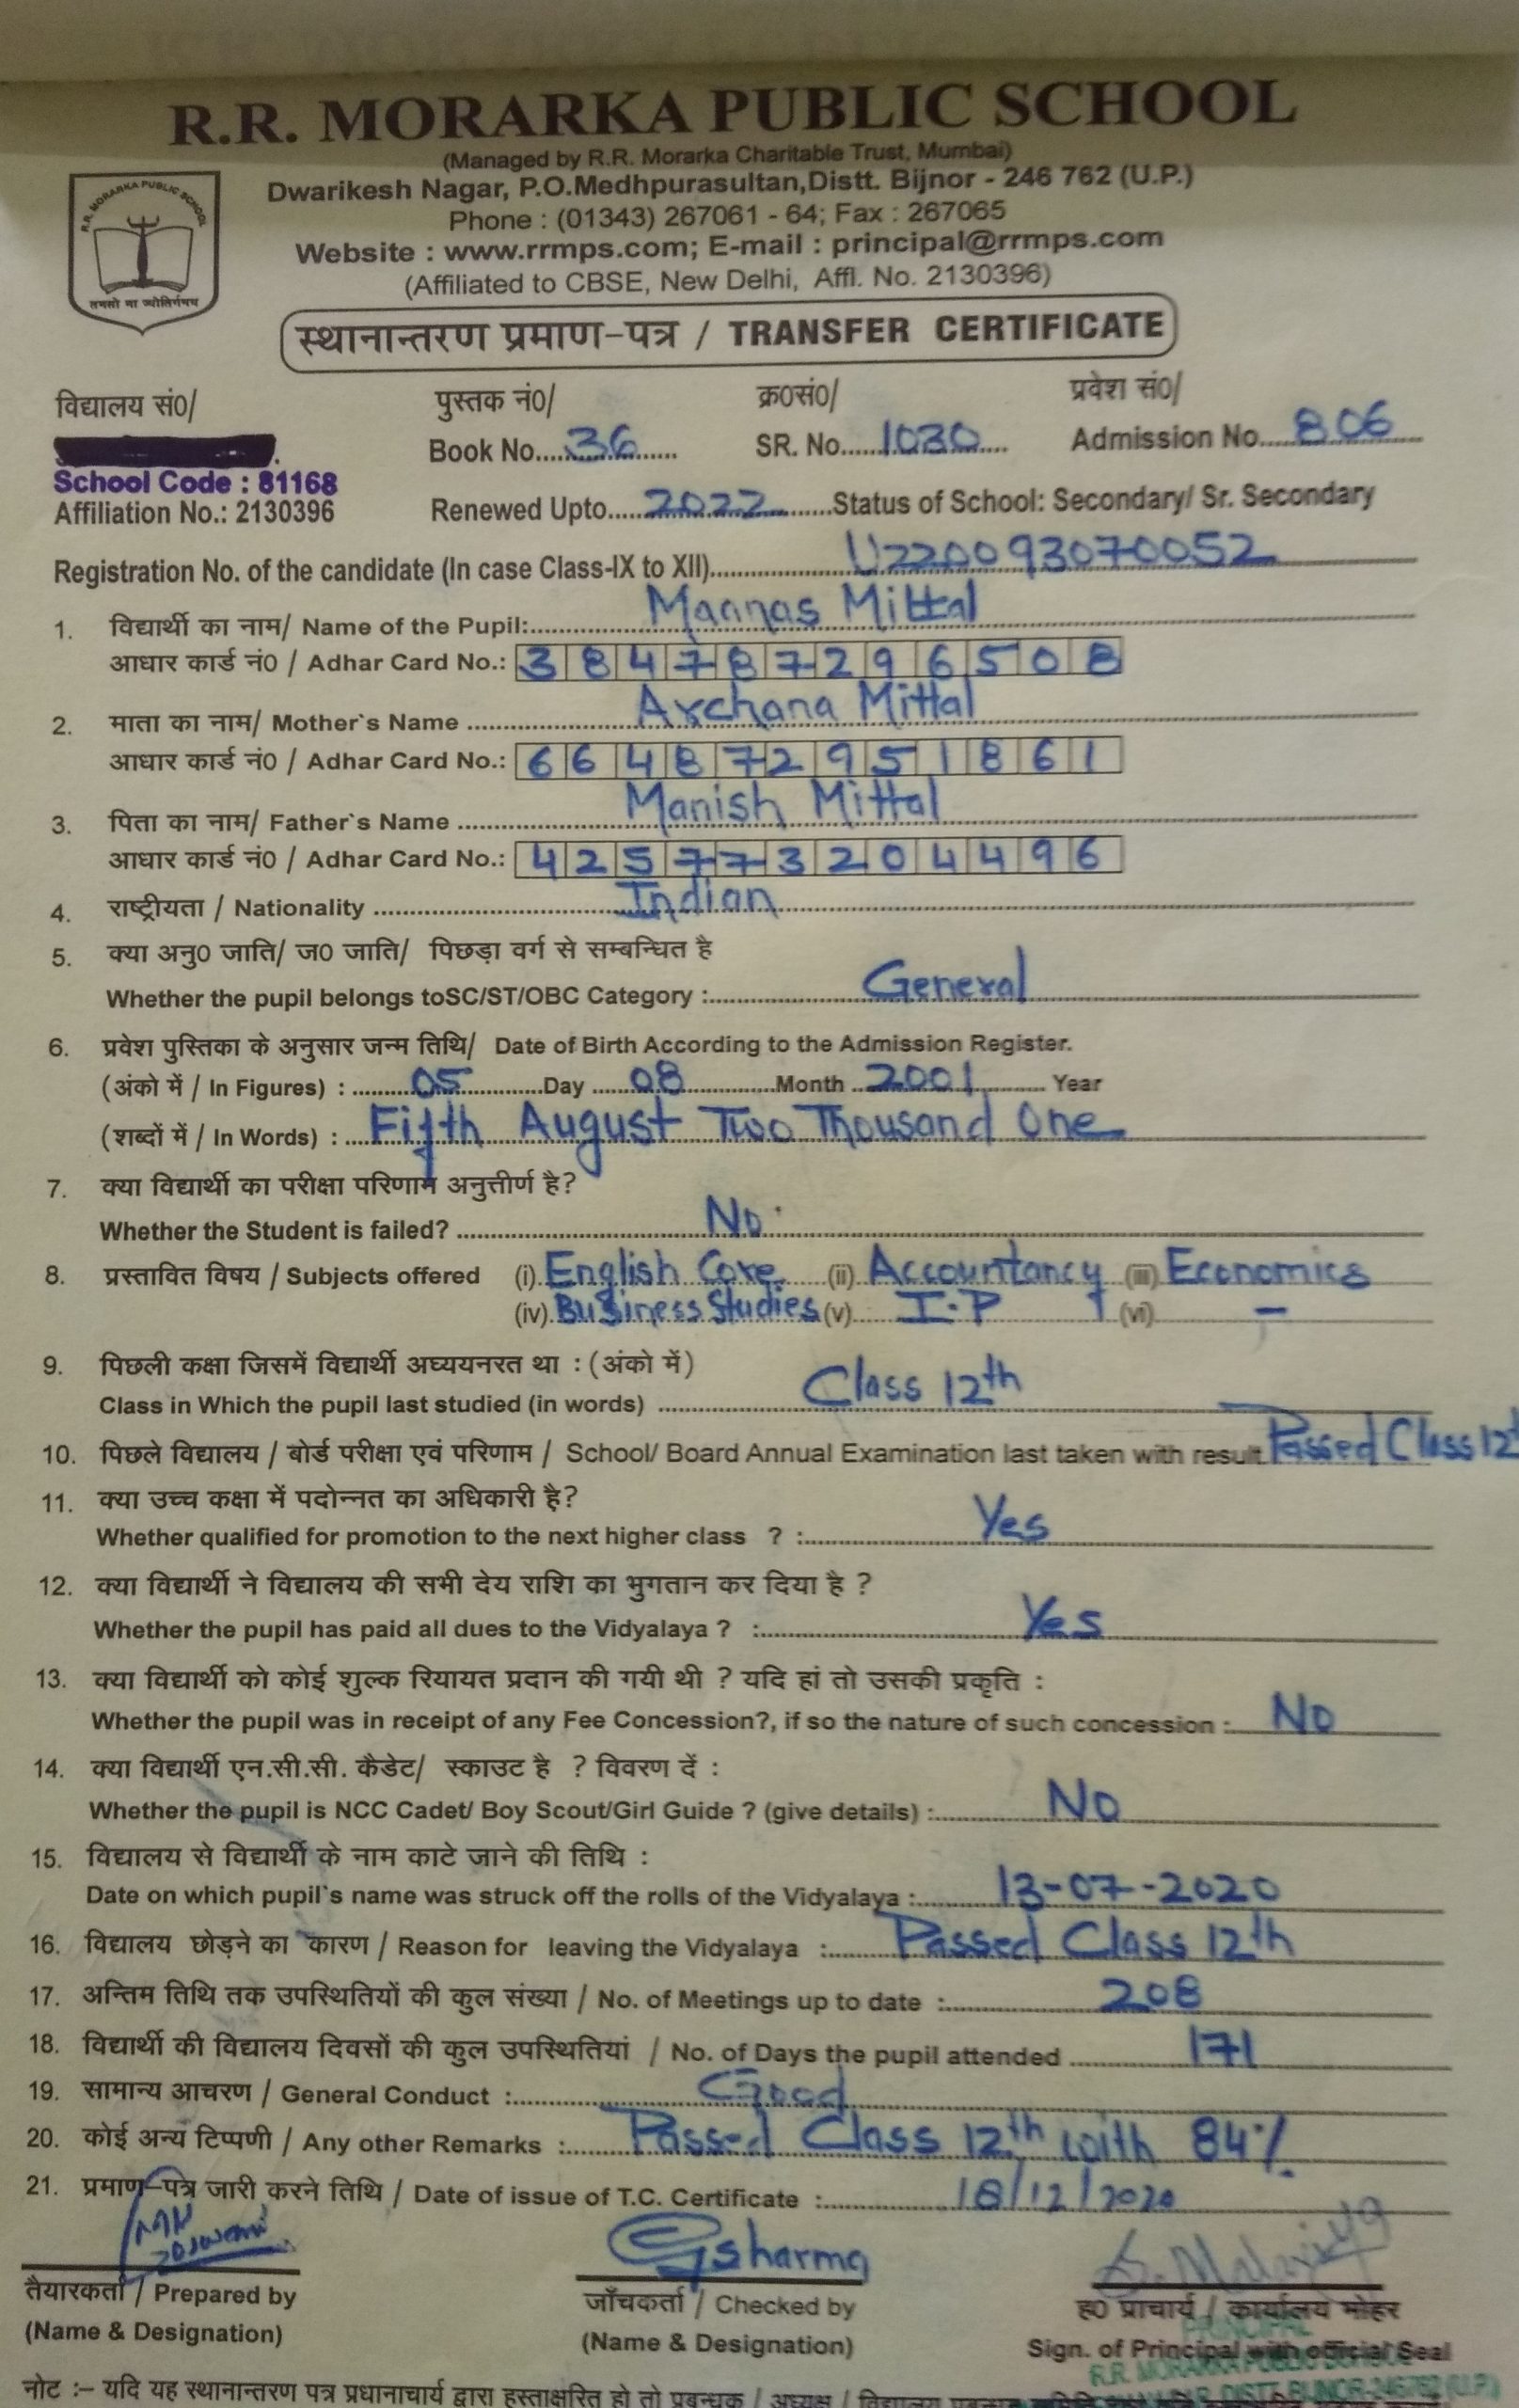 R.R. MORARKA PUBLIC SCHOOL
(Managed by R.R. Morarka Charitable Trust, Mumbai)
Dwarikesh Nagar, P.O.Medhpurasultan,Distt. Bijnor - 246 762 (U.P.)
Phone : (01343) 267061 - 64; Fax : 267065
Website : www.rrmps.com; E-mail : principal@rrmps.com
(Affiliated to CBSE, New Delhi, Affl. No. 2130396)
R.R. MORARKA PUBLIC SCHOOL
तमसो मा ज्योतिर्गमय
स्थानान्तरण प्रमाण-पत्र / TRANSFER CERTIFICATE
विद्यालय सं0/ पुस्तक नं0/ क्र0सं0/ प्रवेश सं0/
Book No.....36....... SR. No......1030.... Admission No.....806....
School Code : 81168
Affiliation No.: 2130396 Renewed Upto.....2022......Status of School: Secondary/ Sr. Secondary
Registration No. of the candidate (In case Class-IX to XII)..................U220093070052
1. विद्यार्थी का नाम/ Name of the Pupil:............Maanas Mittal
आधार कार्ड नं0 / Adhar Card No.: 384787296508
2. माता का नाम/ Mother`s Name ............Archana Mittal
आधार कार्ड नं0 / Adhar Card No.: 664872951861
3. पिता का नाम/ Father`s Name ............Manish Mittal
आधार कार्ड नं0 / Adhar Card No.: 425773204496
4. राष्ट्रीयता / Nationality ............Indian
5. क्या अनु0 जाति/ ज0 जाति/ पिछड़ा वर्ग से सम्बन्धित है
Whether the pupil belongs toSC/ST/OBC Category :............General
6. प्रवेश पुस्तिका के अनुसार जन्म तिथि/ Date of Birth According to the Admission Register.
(अंको में / In Figures) : ........05........Day .....08..........Month ..2001........ Year
(शब्दों में / In Words) : ...Fifth August Two Thousand One
7. क्या विद्यार्थी का परीक्षा परिणाम अनुत्तीर्ण है?
Whether the Student is failed? ............No
8. प्रस्तावित विषय / Subjects offered (i) English Core (ii) Accountancy (iii) Economics
(iv) Business Studies (v) I.P (vi) -
9. पिछली कक्षा जिसमें विद्यार्थी अघ्ययनरत था : (अंको में)
Class in Which the pupil last studied (in words) ............Class 12th
10. पिछले विद्यालय / बोर्ड परीक्षा एवं परिणाम / School/ Board Annual Examination last taken with result. Passed Class 12
11. क्या उच्च कक्षा में पदोन्नत का अधिकारी है?
Whether qualified for promotion to the next higher class ? :............Yes
12. क्या विद्यार्थी ने विद्यालय की सभी देय राशि का भुगतान कर दिया है ?
Whether the pupil has paid all dues to the Vidyalaya ? :............Yes
13. क्या विद्यार्थी को कोई शुल्क रियायत प्रदान की गयी थी ? यदि हां तो उसकी प्रकृति :
Whether the pupil was in receipt of any Fee Concession?, if so the nature of such concession :....No
14. क्या विद्यार्थी एन.सी.सी. कैडेट/ स्काउट है ? विवरण दें :
Whether the pupil is NCC Cadet/ Boy Scout/Girl Guide ? (give details) :............No
15. विद्यालय से विद्यार्थी के नाम काटे जाने की तिथि :
Date on which pupil`s name was struck off the rolls of the Vidyalaya :.........13-07-2020
16. विद्यालय छोड़ने का कारण / Reason for leaving the Vidyalaya :.......Passed Class 12th
17. अन्तिम तिथि तक उपस्थितियों की कुल संख्या / No. of Meetings up to date :............208
18. विद्यार्थी की विद्यालय दिवसों की कुल उपस्थितियां / No. of Days the pupil attended ............171
19. सामान्य आचरण / General Conduct :............Good
20. कोई अन्य टिप्पणी / Any other Remarks :.......Passed Class 12th with 84%.
21. प्रमाण-पत्र जारी करने तिथि / Date of issue of T.C. Certificate :............18/12/2020
Goswami Gsharma
तैयारकर्ता / Prepared by जाँचकर्ता / Checked by ह0 प्राचार्य / कार्यालय मोहर
(Name & Designation) (Name & Designation) Sign. of Principal with official Seal
PRINCIPAL
R.R. MORARKA PUBLIC SCHOOL
DISTT. BIJNOR-246762 (U.P.)
नोट :- यदि यह स्थानान्तरण पत्र प्रधानाचार्य द्वारा हस्ताक्षरित हो तो प्रबन्धक / अध्यक्ष / विद्यालय